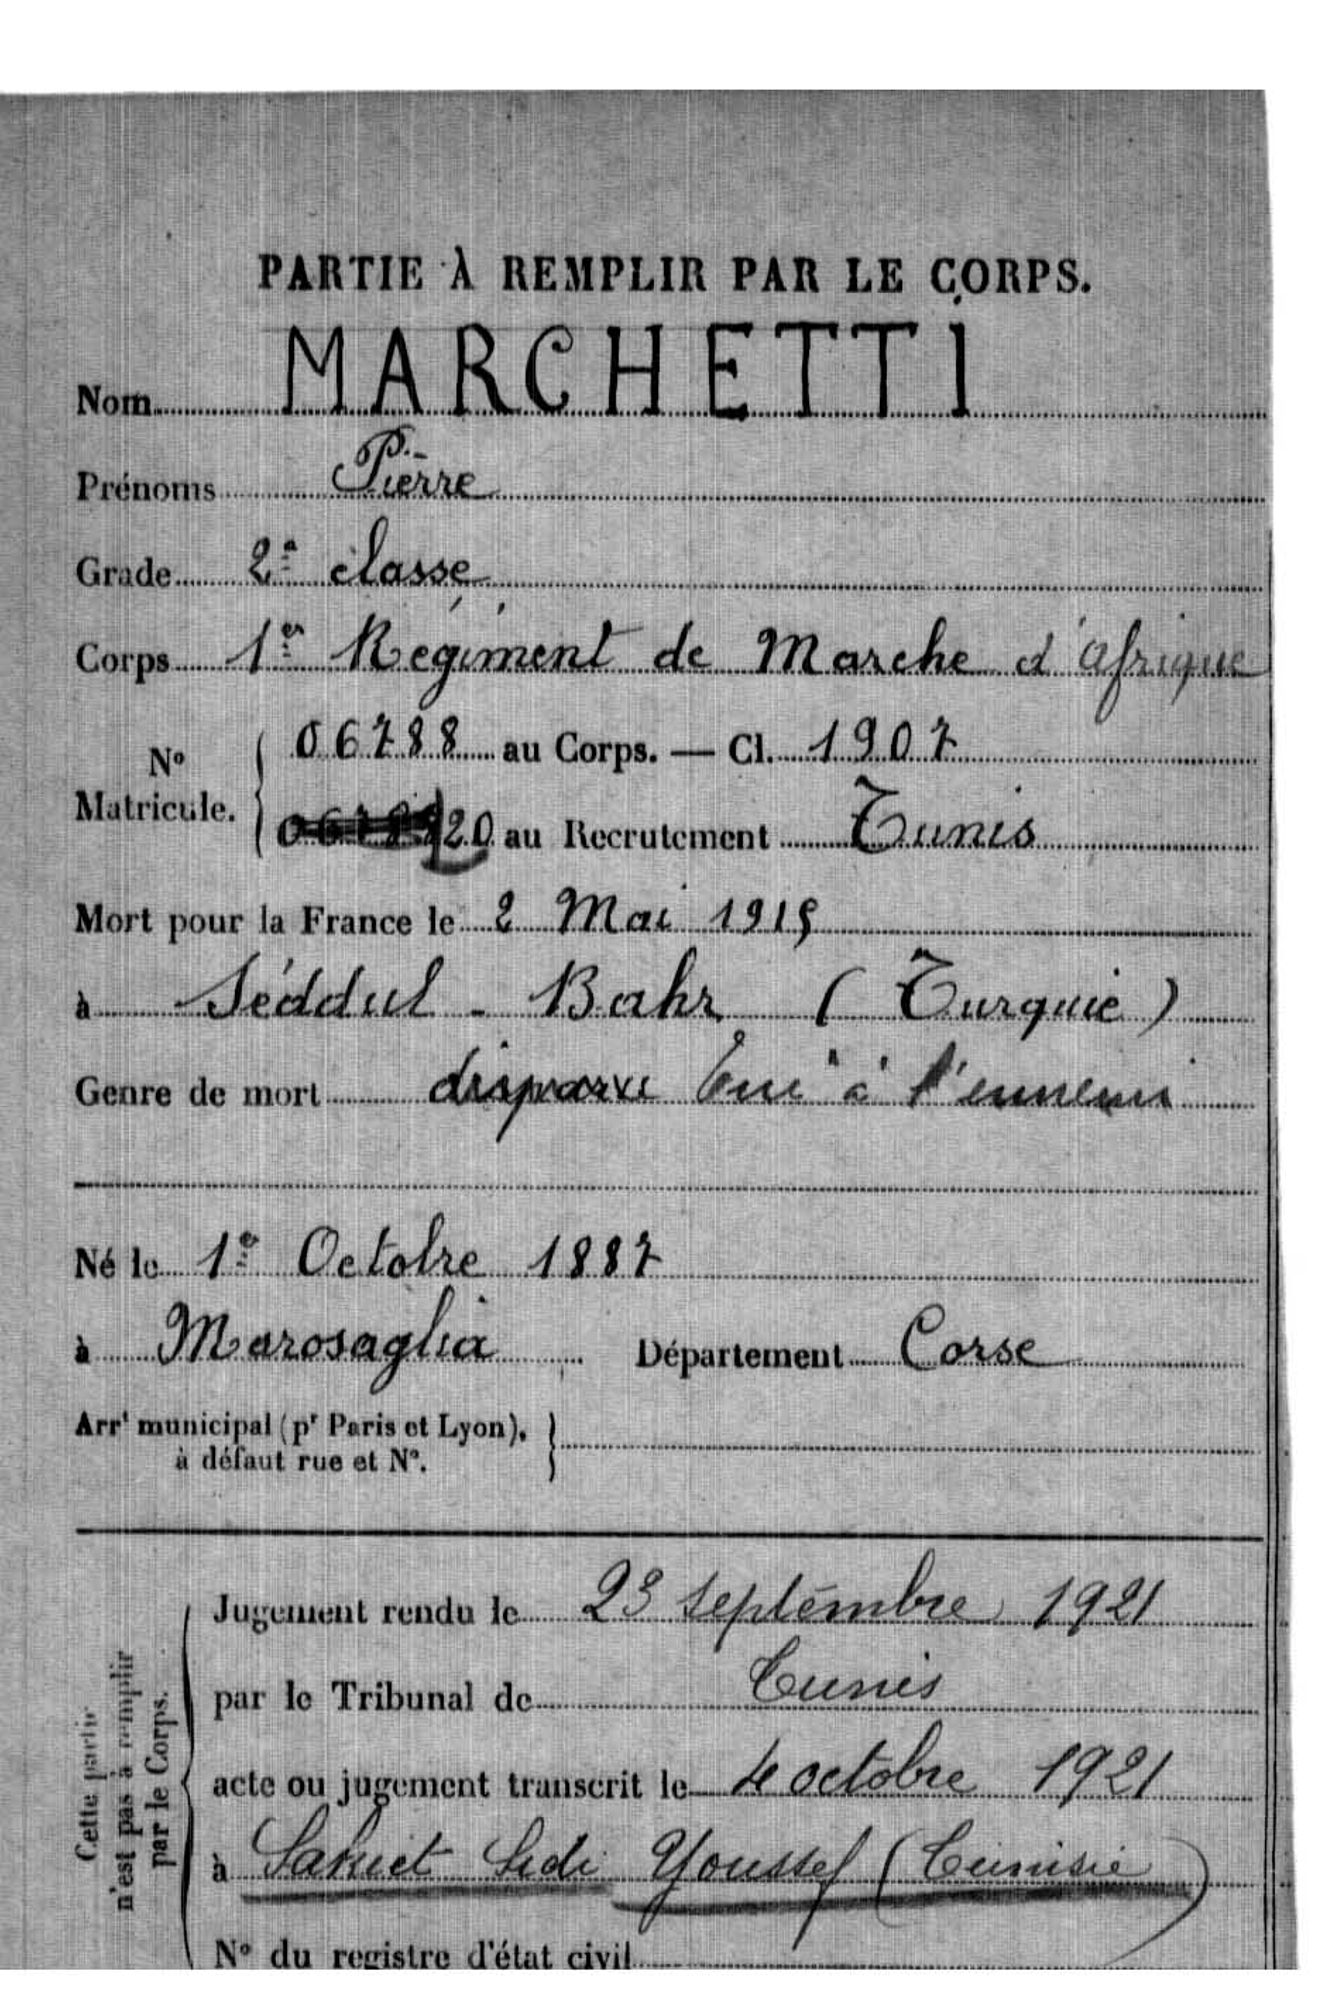 PARTIE À REMPLIR PAR LE CORPS.
Nom MARCHETTI
Prénoms Pierre
Grade 2e classe
Corps 1er Régiment de Marche d'Afrique
No Matricule. 06788 au Corps. — Cl. 1907
20 au Recrutement Tunis
Mort pour la France le 2 Mai 1915
à Séddul - Bahr (Turquie)
Genre de mort disparu Tué à l'ennemi
Né le 1er Octobre 1887
à Morosaglia Département Corse
Arrt municipal (pr Paris et Lyon),
à défaut rue et No.
Cette partie
n'est pas à remplir
par le Corps.
Jugement rendu le 23 septembre 1921
par le Tribunal de Tunis
acte ou jugement transcrit le 4 octobre 1921
à Sakiet Sidi Youssef (Tunisie)
No du registre d'état civil